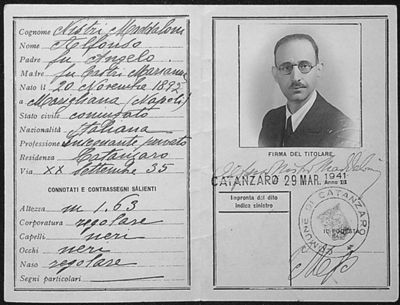 Cognome Nistri Maddaloni
Nome Alfonso
Padre fu Angelo
Madre fu
Nato il 20 Novembre 1892
a Marigliano (Napoli)
Stato civile coniugato
Nazionalità Italiana
Professione Insegnante privato
Residenza Catanzaro
Via XX Settembre 35
CONNOTATI E CONTRASSEGNI SALIENTI
Altezza m 1.63
Corporatura regolare
Capelli neri
Occhi neri
Naso regolare
Segni particolari
FIRMA DEL TITOLARE
CATANZARO 29 MAR. 1941
Anno
Impronta del dito
indice sinistro
IL PODESTÀ
COMUNE DI CATANZARO